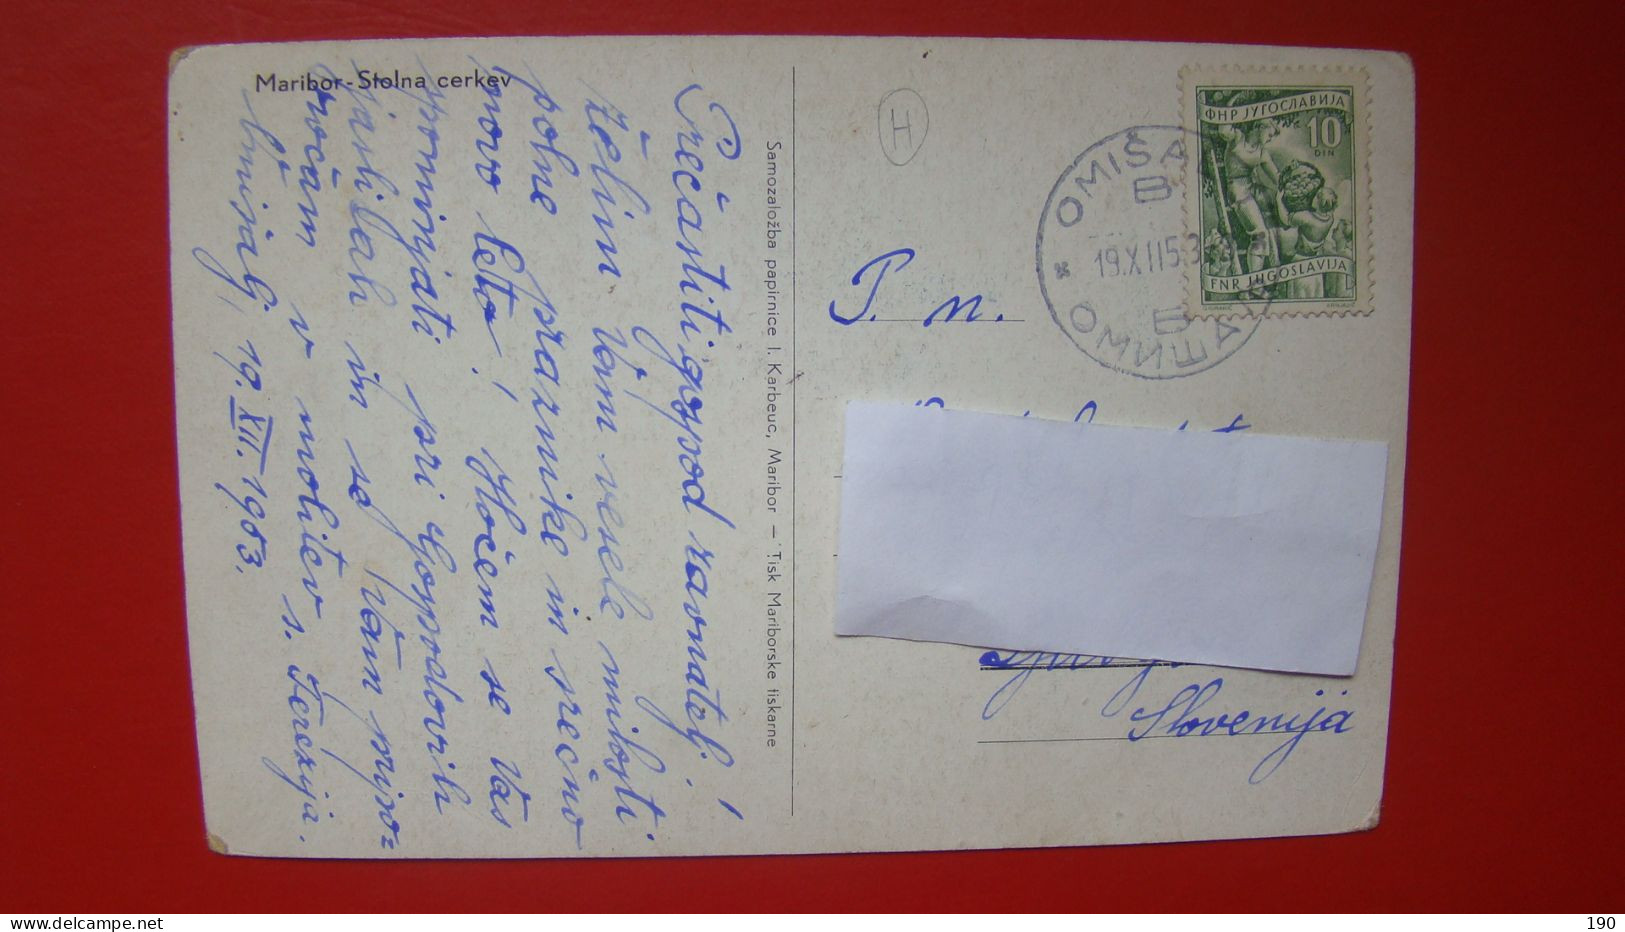 Maribor - Stolna cerkev
Prečastiti gospod ravnatelj!
Želim Vam vesele milosti
polne praznike in srečno
novo leto! Hočem se Vas
spominjati pri Gospodovih
jaslicah in se Vam pripo=
ročam v molitev s. Terezija.
Omišalj, 19. XII. 1953.
Samozaložba papirnice I. Karbeuc, Maribor — Tisk Mariborske tiskarne
H
ФНР ЈУГОСЛАВИЈА
10
DIN
FNR JUGOSLAVIJA
OMIŠA
B
19.XII.53
B
ОМИШАЉ
P. n.
Slovenija
190